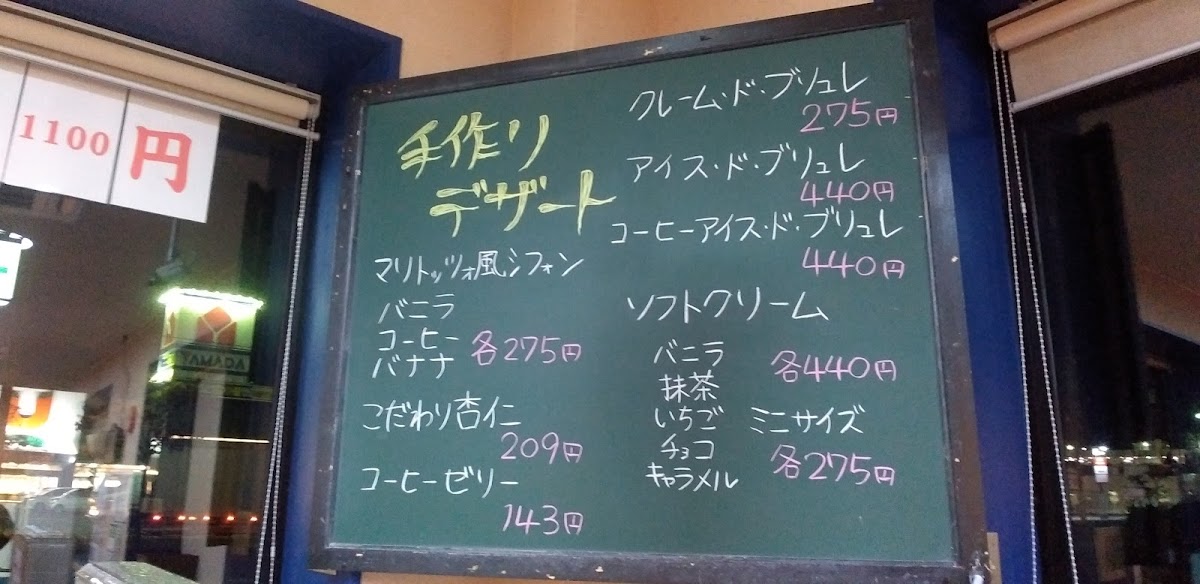 1100
円
手作り
デザート
マリトッツォ風シフォン
バニラ
コーヒー
バナナ 各275円
こだわり杏仁
209円
コーヒーゼリー
143円
クレーム・ド・ブリュレ
275円
アイス・ド・ブリュレ
440円
コーヒーアイス・ド・ブリュレ
440円
ソフトクリーム
バニラ 各440円
抹茶
いちご ミニサイズ
チョコ 各275円
キャラメル
YAMADA